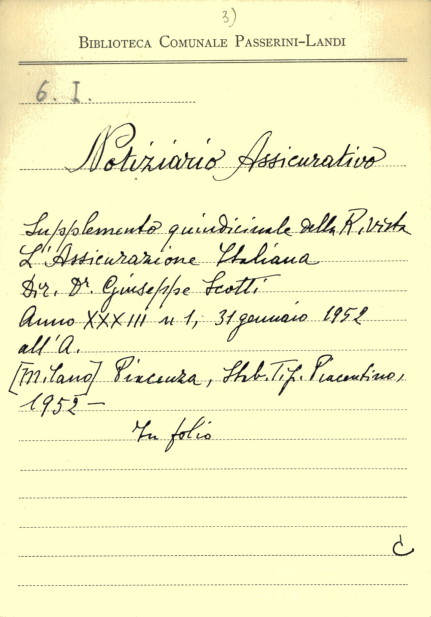 3)
BIBLIOTECA COMUNALE PASSERINI-LANDI
6. I.
Notiziario Assicurativo
Supplemento quindicinale della Rivista
L'Assicurazione Italiana
Dir. Dr. Giuseppe Scotti
Anno XXXIII n 1, 31 gennaio 1952
all'A.
[Milano] Piacenza, Stab. Tip. Piacentino,
1952 –
In folio
c